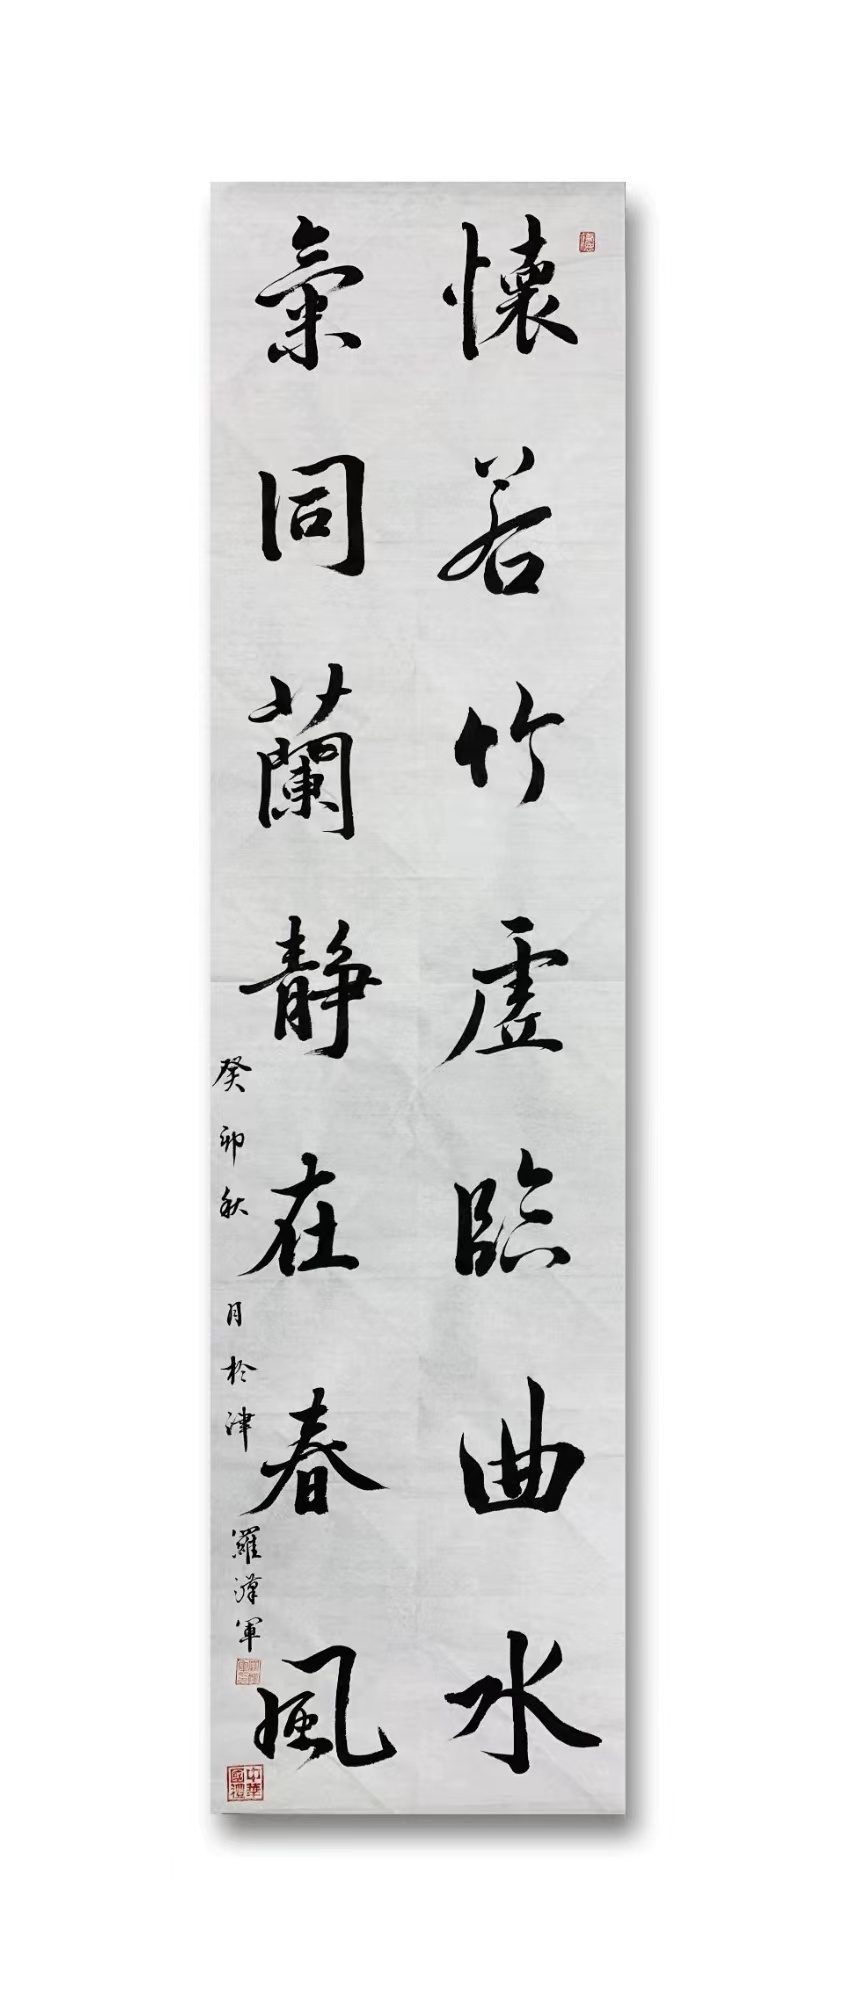 懷若竹虛臨曲水
氣同蘭靜在春風
癸卯秋月於津羅漢軍
中華國禮